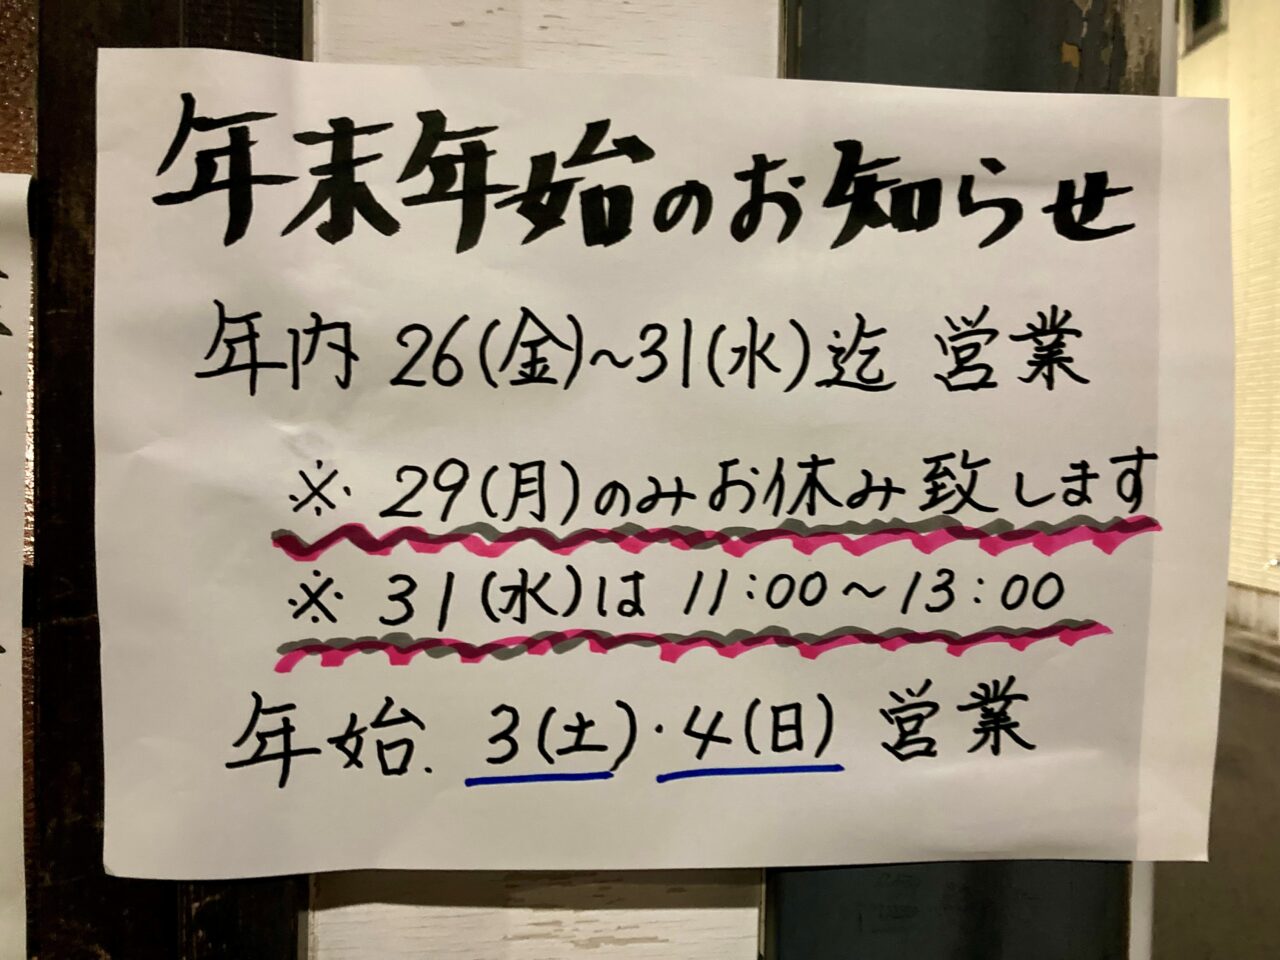 年末年始のお知らせ
年内 26(金)~31(水)迄 営業
※ 29(月)のみお休み致します
※ 31(水)は 11:00~13:00
年始. 3(土)・4(日) 営業